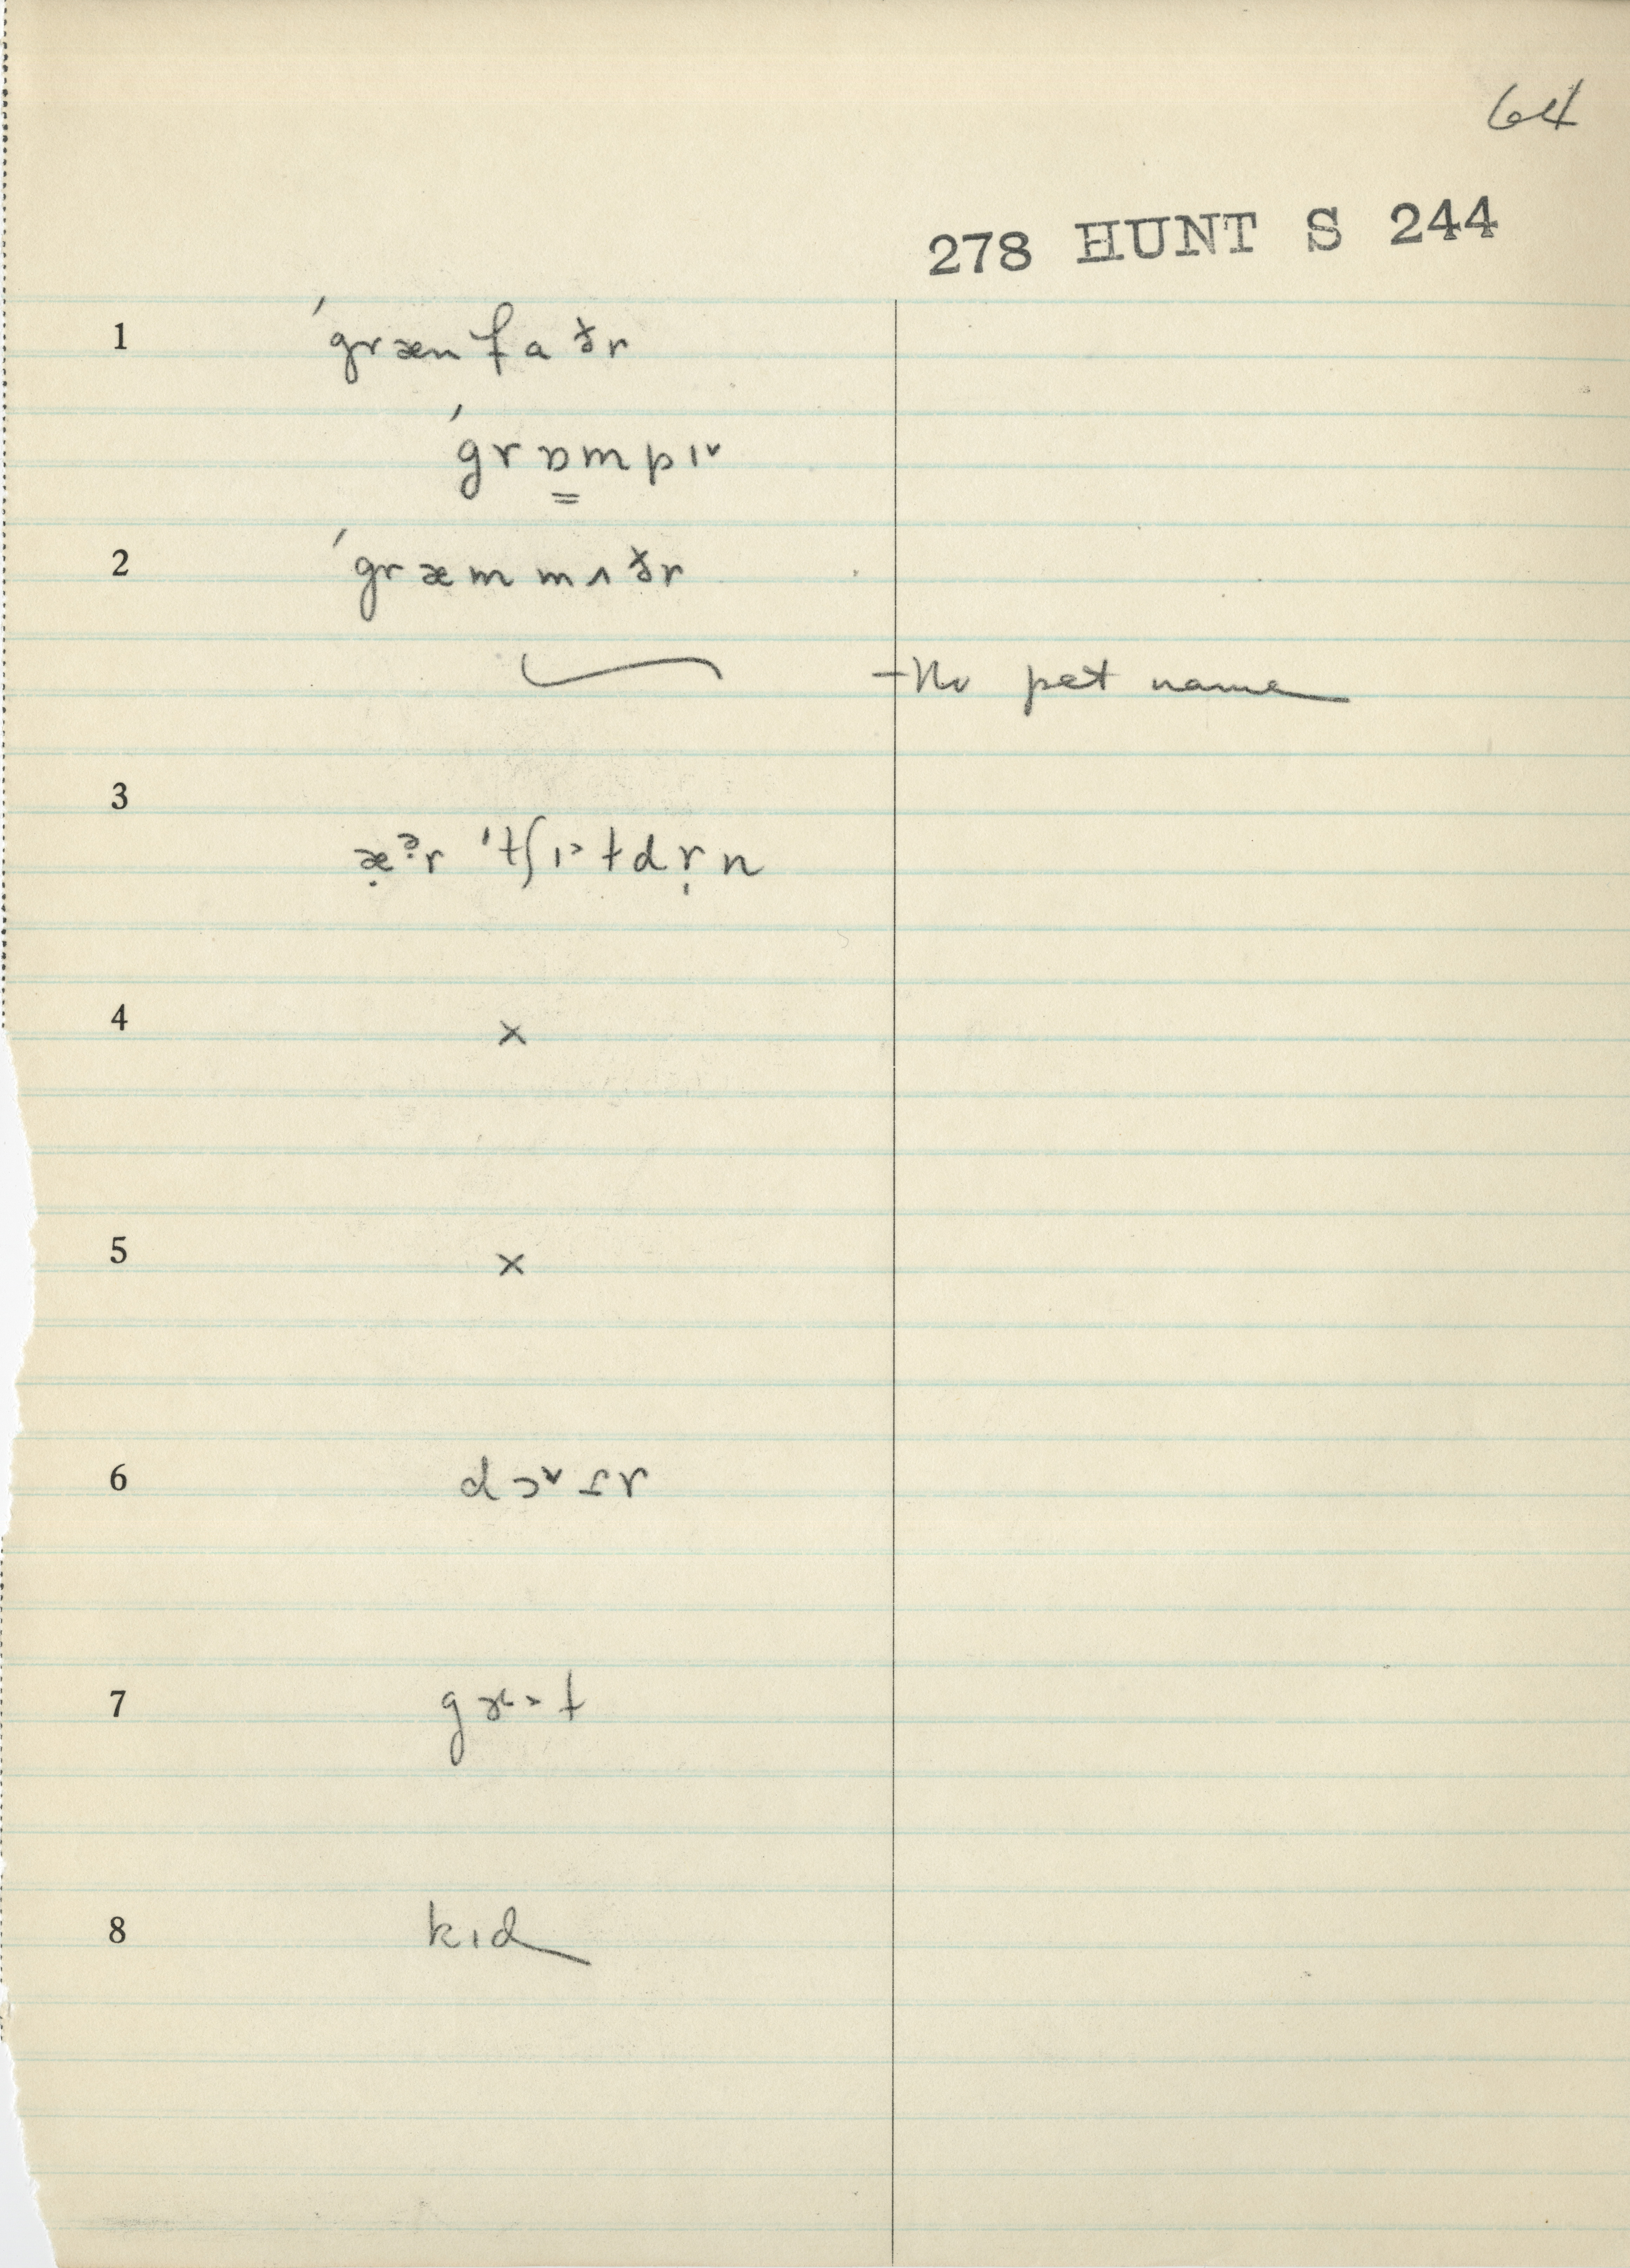 64
278 HUNT S 244
1 ˈgrænfaðr
ˈgrɒ̳mpɪ˅
2 ˈgræmmʌðr
– No pet name
3
æ̣ᵊr ˈtʃɪ˂ɫdr̩n
4 ×
5 ×
6
7
8 kɪd